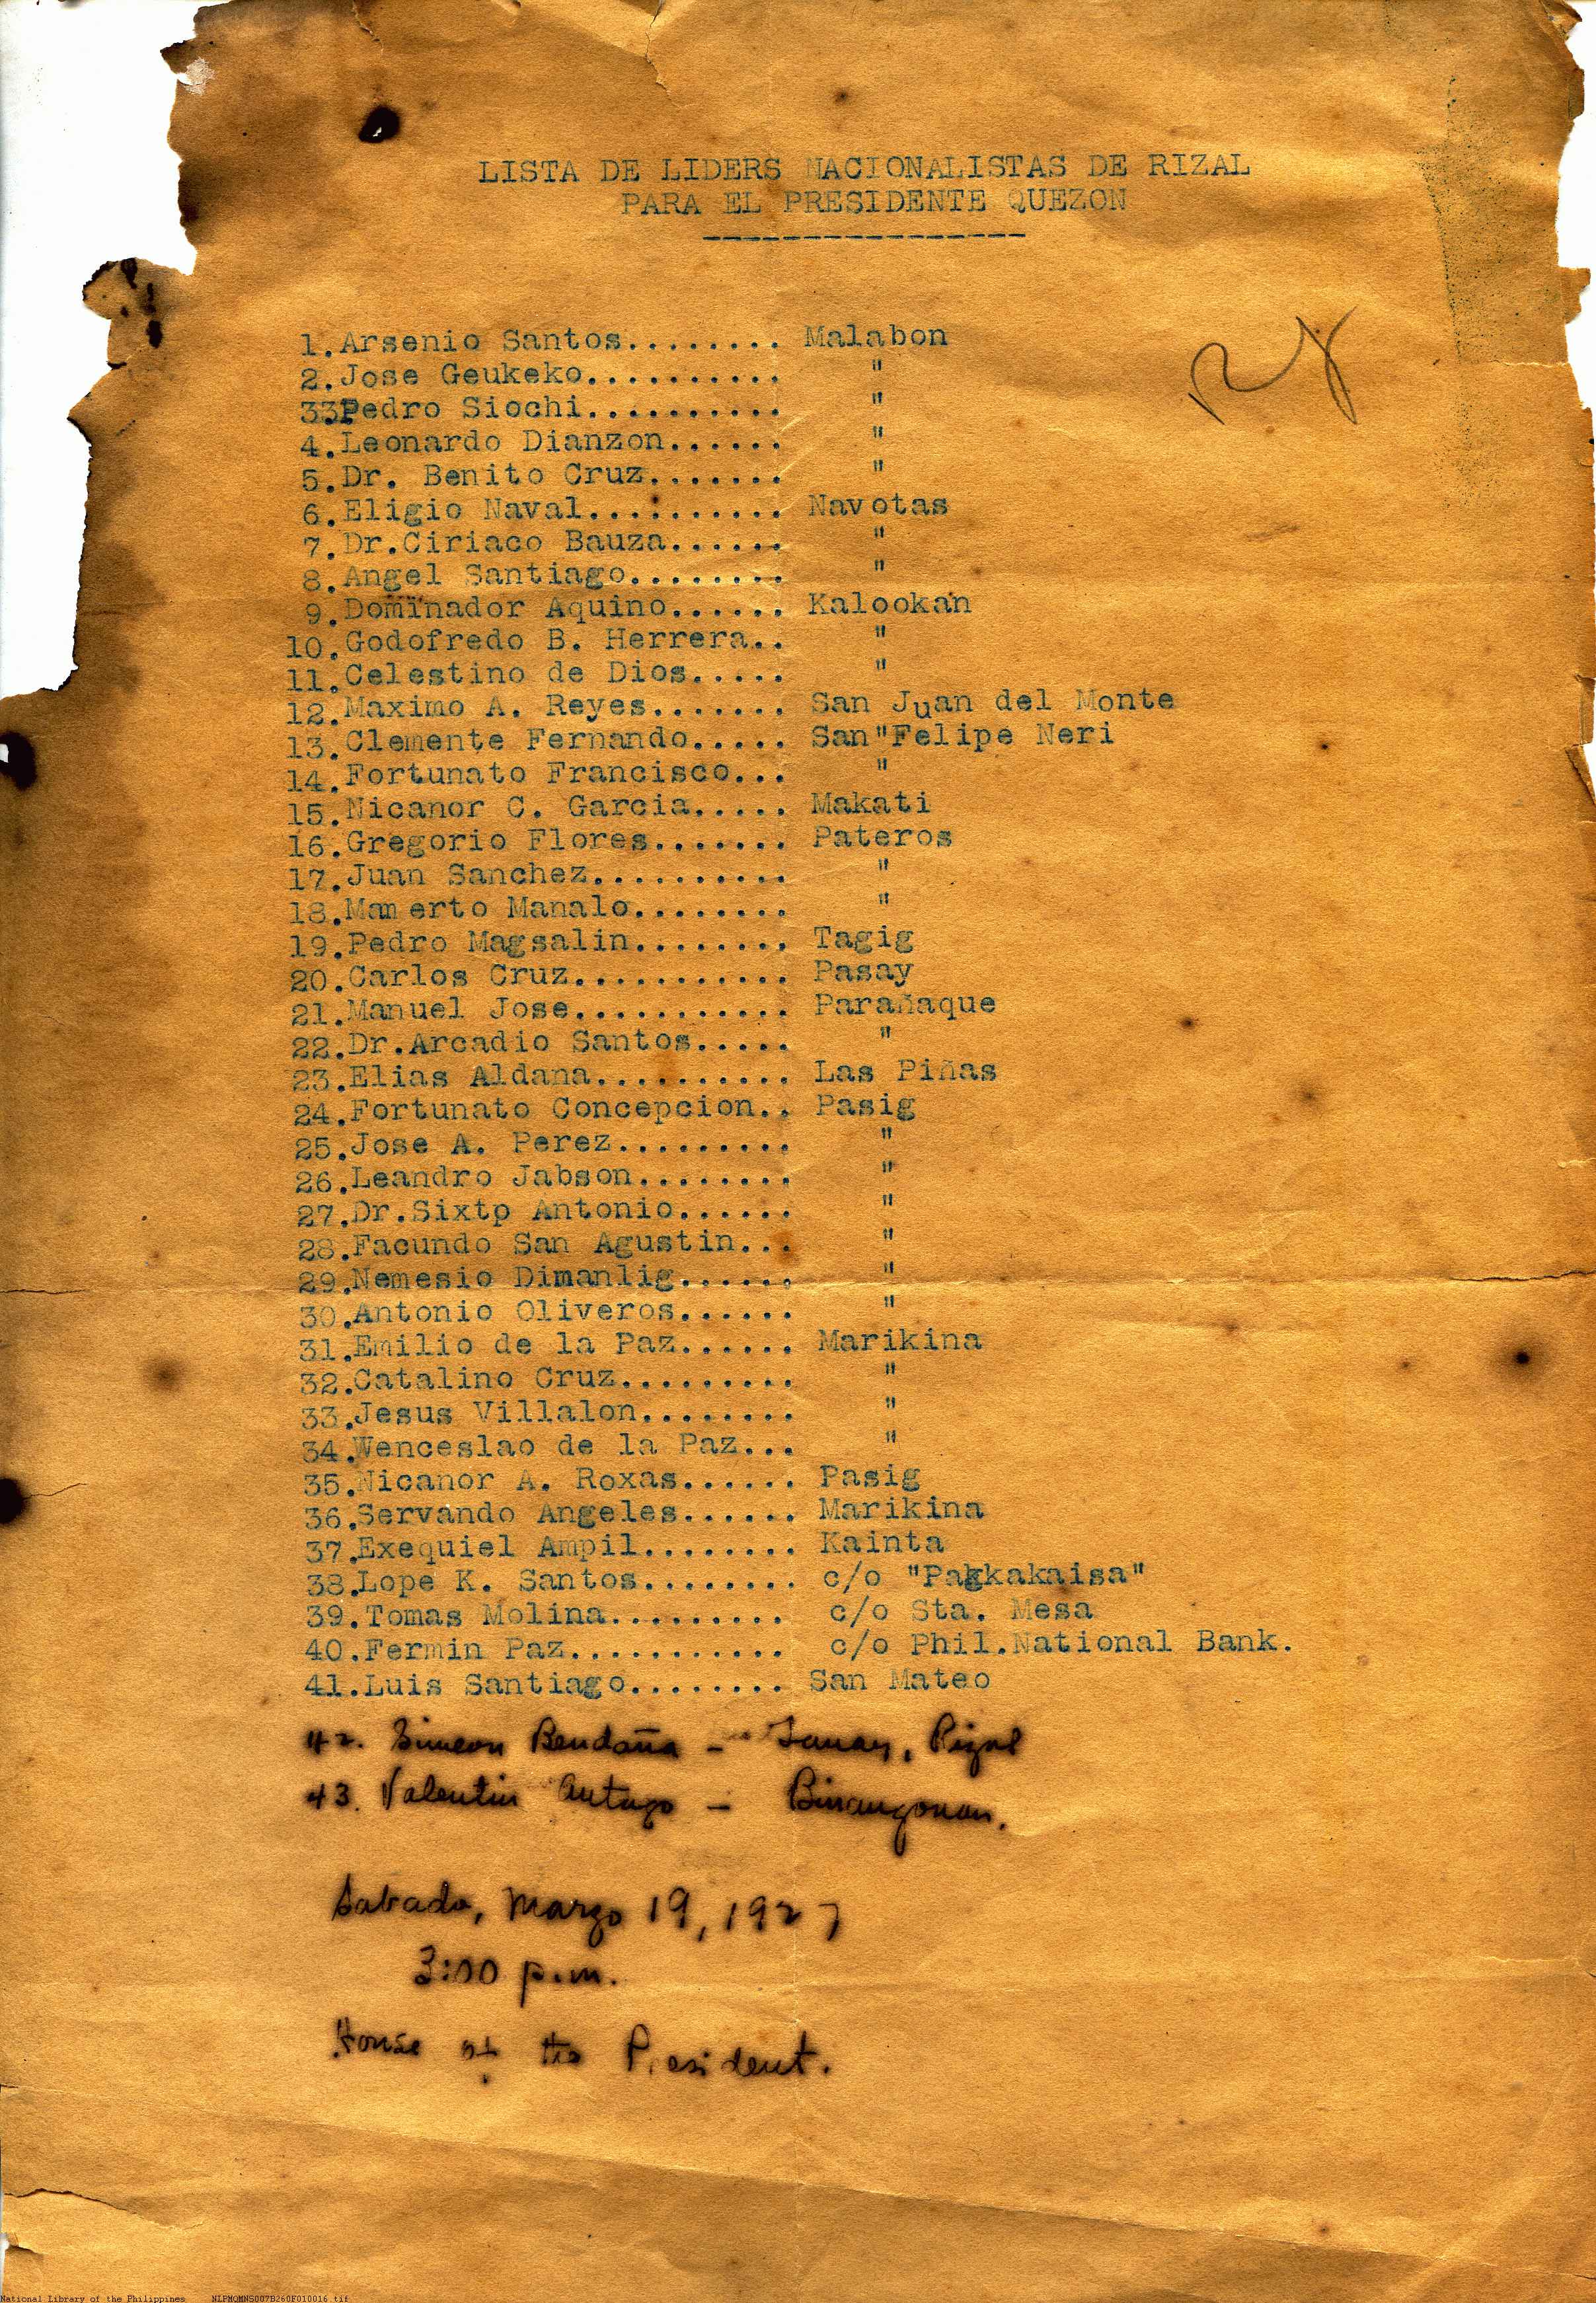 LISTA DE LIDERS NACIONALISTAS DE RIZAL
PARA EL PRESIDENTE QUEZON
----------------
1.Arsenio Santos........ Malabon
2.Jose Geukeko.......... "
33Pedro Siochi.......... "
4.Leonardo Dianzon...... "
5.Dr. Benito Cruz....... "
6.Eligio Naval.......... Navotas
7.Dr.Ciriaco Bauza...... "
8.Angel Santiago........ "
9.Dominador Aquino...... Kalookan
10.Godofredo B. Herrera.. "
11.Celestino de Dios..... "
12.Maximo A. Reyes....... San Juan del Monte
13.Clemente Fernando..... San"Felipe Neri
14.Fortunato Francisco... "
15.Nicanor C. Garcia..... Makati
16.Gregorio Flores....... Pateros
17.Juan Sanchez.......... "
18.Mamerto Manalo........ "
19.Pedro Magsalin........ Tagig
20.Carlos Cruz........... Pasay
21.Manuel Jose........... Parañaque
22.Dr.Arcadio Santos..... "
23.Elias Aldana.......... Las Piñas
24.Fortunato Concepcion.. Pasig
25.Jose A. Perez......... "
26.Leandro Jabson........ "
27.Dr.Sixtp Antonio...... "
28.Facundo San Agustin... "
29.Nemesio Dimanlig...... "
30.Antonio Oliveros...... "
31.Emilio de la Paz...... Marikina
32.Catalino Cruz......... "
33.Jesus Villalon........ "
34.Wenceslao de la Paz... "
35.Nicanor A. Roxas...... Pasig
36.Servando Angeles...... Marikina
37.Exequiel Ampil........ Kainta
38.Lope K. Santos........ c/o "Pagkakaisa"
39.Tomas Molina......... c/o Sta. Mesa
40.Fermin Paz........... c/o Phil.National Bank.
41.Luis Santiago........ San Mateo
42. Simeon Bendaña - Tanay, Rizal
43. Valentin - Binangonan.
Sabado, Marzo 19, 1927
3:00 p.m.
House of the President.
National Library of the Philippines NLPMQMNS007B260F010016.tif